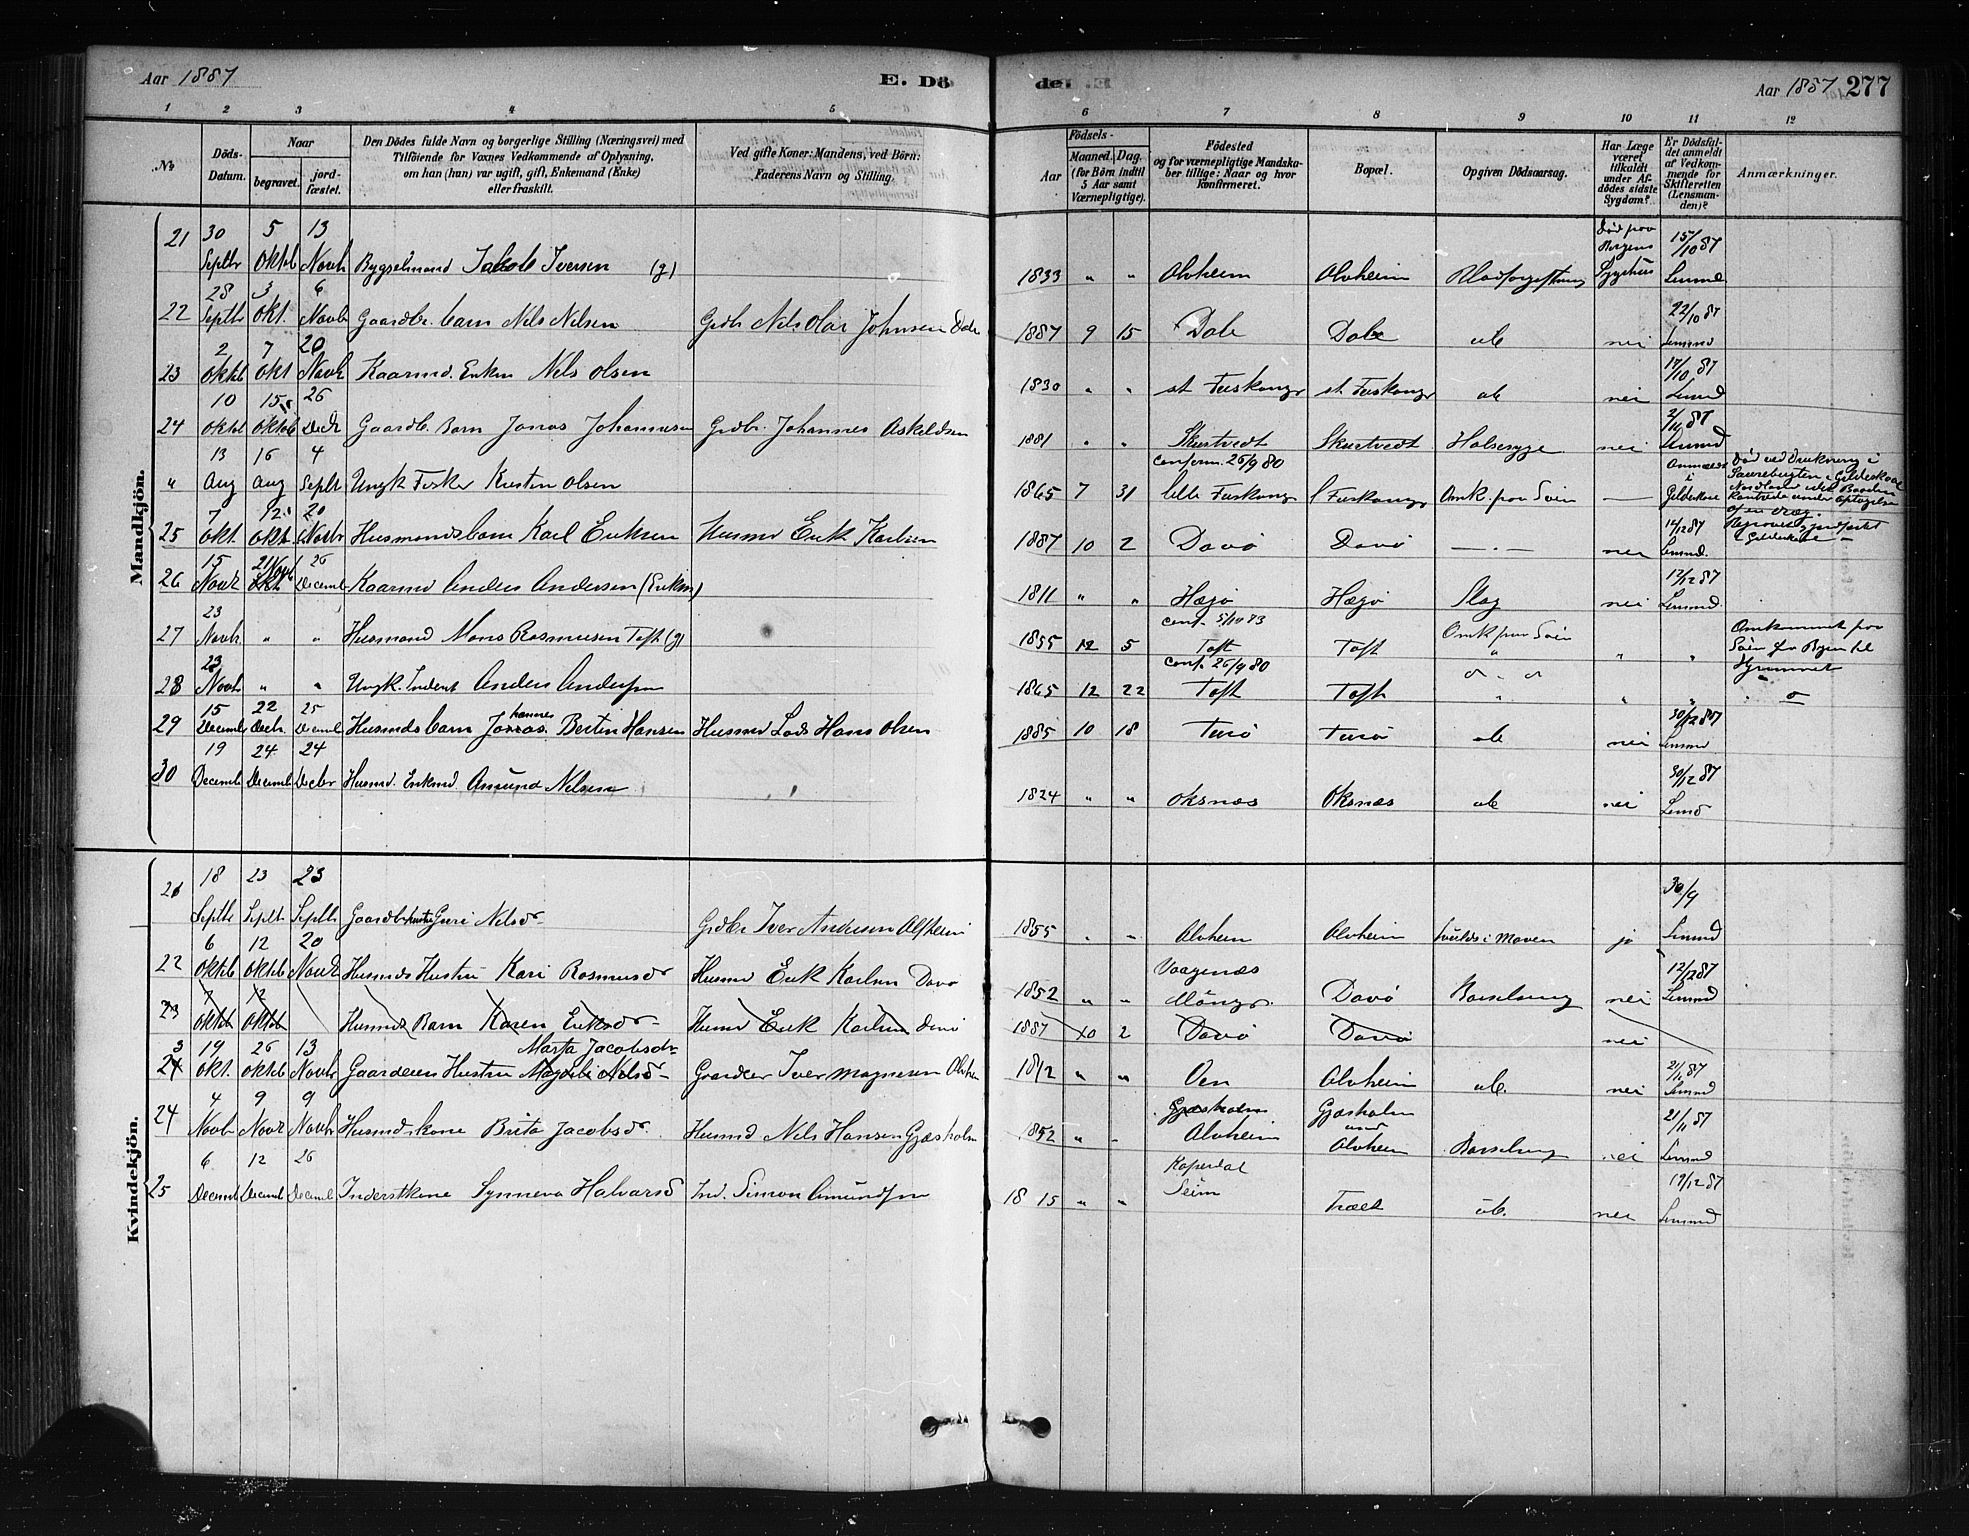 Aar 1887
E. Dö
de. E.
Aar 1887 277
1 2 3 4 5 6 7 8 9 10 11 12
No
Döds-Datum.
Naar
begravet.
jord-fæstet.
Den Dödes fulde Navn og borgerlige Stilling (Næringsvei) med
Tilföiende for Voxnes Vedkommende af Oplysning,
om han (hun) var ugift, gift, Enkemand (Enke)
eller fraskilt.
Ved gifte Koner: Mandens, ved Börn:
Faderens Navn og Stilling.
Aar
Födsels-
Maaned. Dag.
(for Börn indtil
5 Aar samt
Værnepligtige).
Födested
og for værnepligtige Mandska-
ber tillige: Naar og hvor
konfirmeret.
Bopæl.
Opgiven Dödsaarsag.
Har Læge
været
tilkaldt
under Af-
dödes sidste
Sygdom?
Er Dödsfal-
det anmeldt
af Vedkom-
mende for
Skifteretten
(Lensman-
den)?
Anmærkninger.
Mandkjön.
21 30 Septbr 5 Oktb 13 Novb Bygselmand Jakob Iversen (g) 1833 " " Alvheim Alvheim Blodforgiftning Död paa Bergens Sygehus 15/10 87 Lensmd
22 28 Septbr 3 Okt. 6 Novb Gaardbr. barn Nils Nilsen Grdbr Nils Olai Johnsen Dale 1887 9 15 Dale Dale ub nei 22/10 87 Lensmd
23 2 Oktb 7 Okt 20 Novb Kaarmd. Enkm Nils Olsen 1830 " " st Færskongr st Færskongr ub nei 17/10 87 Lensmd
24 10 Oktb 15 Oktob 26 Decb Gaardb. Barn Jonas Johannesen Grdbr. Johannes Askeldsen 1881 " " Skurtvedt Skurtvedt Halsesyge nei 2/11 87 Lensmd
" 13 Aug 16 Aug 4 Septb Ungk Fisker Kristen Olsen 1865 7 31 confirm. 26/9 80 Omk. paa Söen — Anmeldt i Gildeskaal Död ved Drukning i
25 7 Okt. 12 Okt. 20 Novbr Husmandsbarn Karl Eriksen Husmd Erik Karlsen 1887 10 2 Davö Davö — . — nei 14/12 87 Lensmd.
26 15 Novb 21 Novb 26 Decemb Kaarmd Anders Andersen (Enkm) 1811 " " Hægö Hægö Slag nei 17/12 87 Lensmd.
27 23 Novb. " " Husmand Mons Rasmusen Toft (g) 1855 12 5 Toft conf. Toft Omk paa Söen " " Omkommet paa Söen fr Byen til Hjemmet
28 23 Novb " " Ungk. Anders Anderssen 1865 12 22 conf. 26/9 80 Toft Toft " " "
29 15 Decemb 22 Decb. 25 Decemb Husmds barn Johannes Bertin Hansen Husmd Lods Hans Olsen 1885 10 18 Turö Turö ub nei 30/12 87 Lensmd
30 19 Decemb 24 Decemb 24 Decbr Husmd. Enkmd Amund Nilsen 1824 " " Oksnæs Oksnæs ub nei 30/12 87 Lensmd
Kvindekjön.
21 18 Septb 23 Septb. 23 Septb Gaardb hustru Guri Nilsdr Grdbr Iver Andersen Alfheim 1855 " " Alvheim Alvheim Svulds i Maven ja 30/9 Lensmd
22 6 Oktb 12 Oktb 20 Novb Husmds Hustru Kari Rasmusdr Husmd Erik Karlsen Davö 1852 " " Vaagenæs Mangr. Davö Barselseng nei 12/12 87 Lensmd
23 7 Oktb 12 Oktb Husmds Barn Karen Eriksdr Husmd Erik Karlsen Davö 1887 10 2 Davö Davö nei
23 19 Okt. 26 Oktb 13 Novbr Gaarderens Hustru Marta Jacobsdr Gaardeer Iver Magnesen Alvheim 1812 " " Oen Alvheim ub. nei 21/11 87 Lensmd
24 4 Novb 9 Novb 9 Novb Husmdskone Brita Jacobsdr. Husmd Nils Hansen Gjæsholm 1852 " " Gjæsholm Alvheim Gjæsholm Alvheim Barselseng nei 21/11 87 Lensmd
25 6 Decemb 12 Decemb 26 Decemb Inderstkone Synneva Halvarsd Ind. Simon Amundsen 1815 " " Seim Træet ub. nei 17/12 87 Lensmd